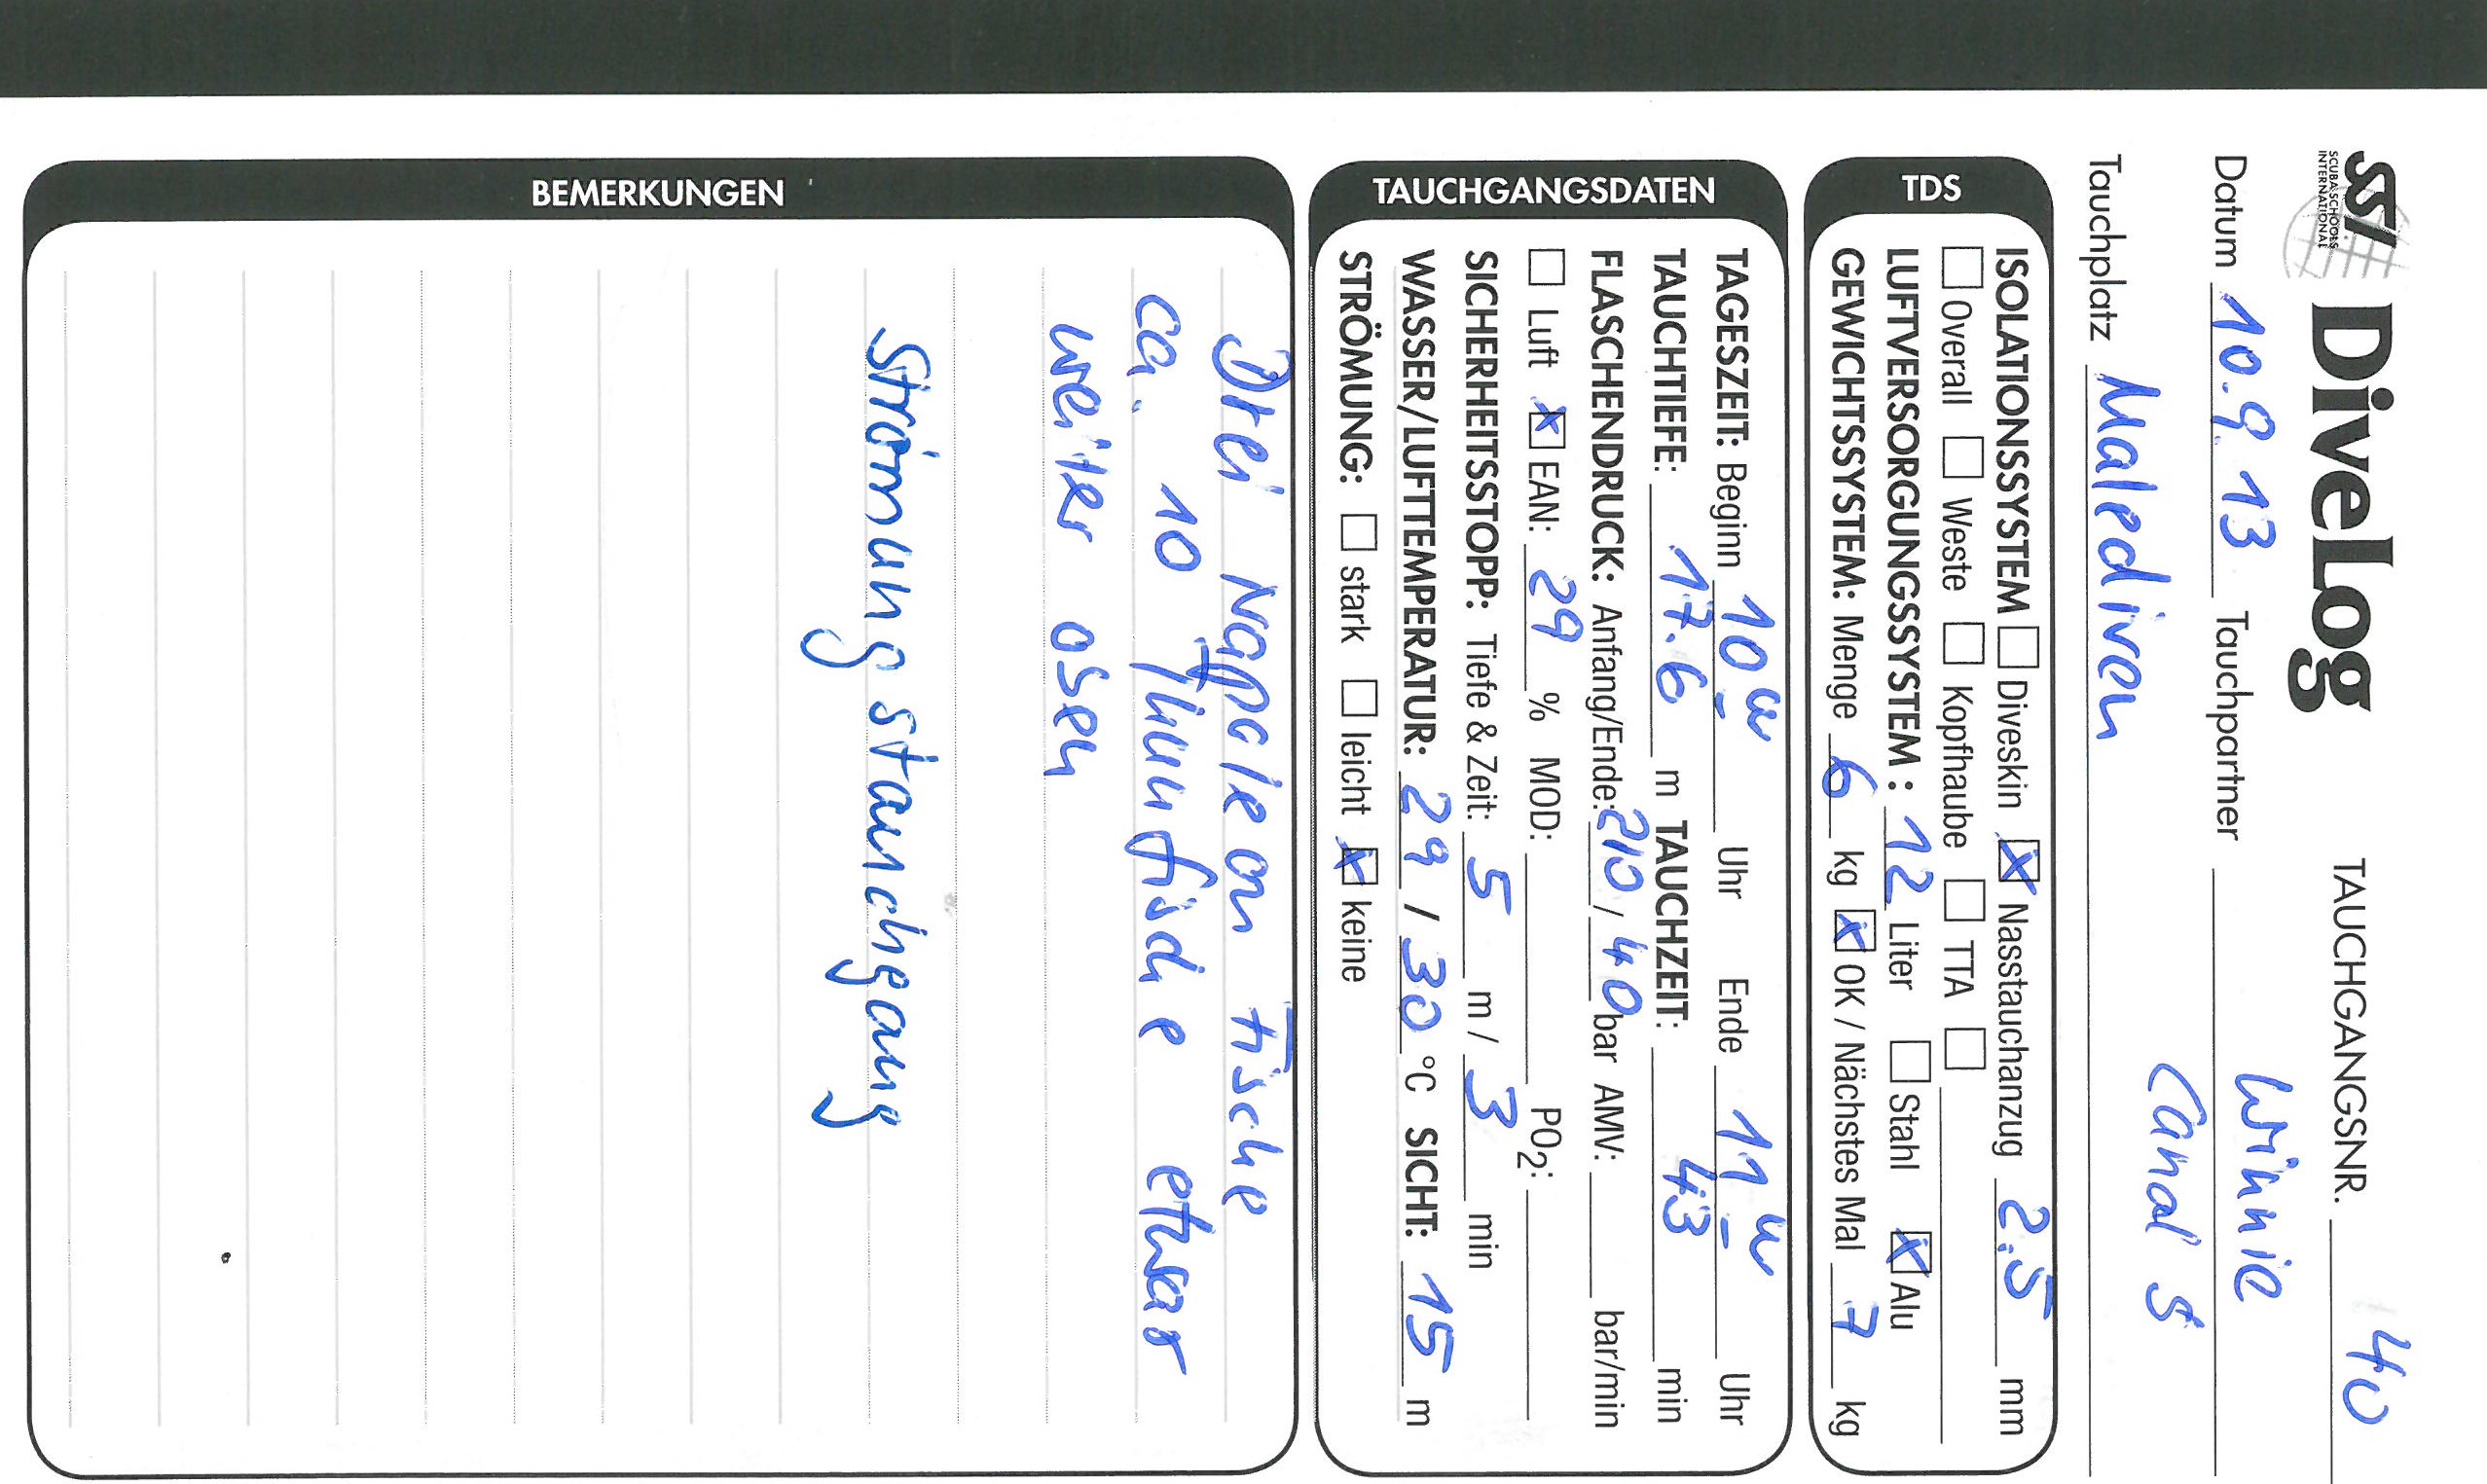 SSI SCUBA SCHOOLS INTERNATIONAL DiveLog TAUCHGANGSNR. 40
Datum 10.9.13 Tauchpartner Winnie
Tauchplatz Malediven Canal 5
TDS
ISOLATIONSSYSTEM ☐ Diveskin ☒ Nasstauchanzug 2,5 mm
☐ Overall ☐ Weste ☐ Kopfhaube ☐ TTA ☐
LUFTVERSORGUNGSSYSTEM: 12 Liter ☐ Stahl ☒ Alu
GEWICHTSSYSTEM: Menge 6 kg ☒ OK / Nächstes Mal 7 kg
TAUCHGANGSDATEN
TAGESZEIT: Beginn 10 Uhr Ende 11 Uhr
TAUCHTIEFE: 17.6 m TAUCHZEIT: 43 min
FLASCHENDRUCK: Anfang/Ende: 210 / 40 bar AMV: bar/min
☐ Luft ☒ EAN: 29 % MOD: PO2:
SICHERHEITSSTOPP: Tiefe & Zeit: 5 m / 3 min
WASSER/LUFTTEMPERATUR: 29 / 30 °C SICHT: 15 m
STRÖMUNG: ☐ stark ☐ leicht ☒ keine
BEMERKUNGEN
Drei Napoleon Fische
ca. 10 Thunfische etwas
weiter oben
Strömungstauchgang